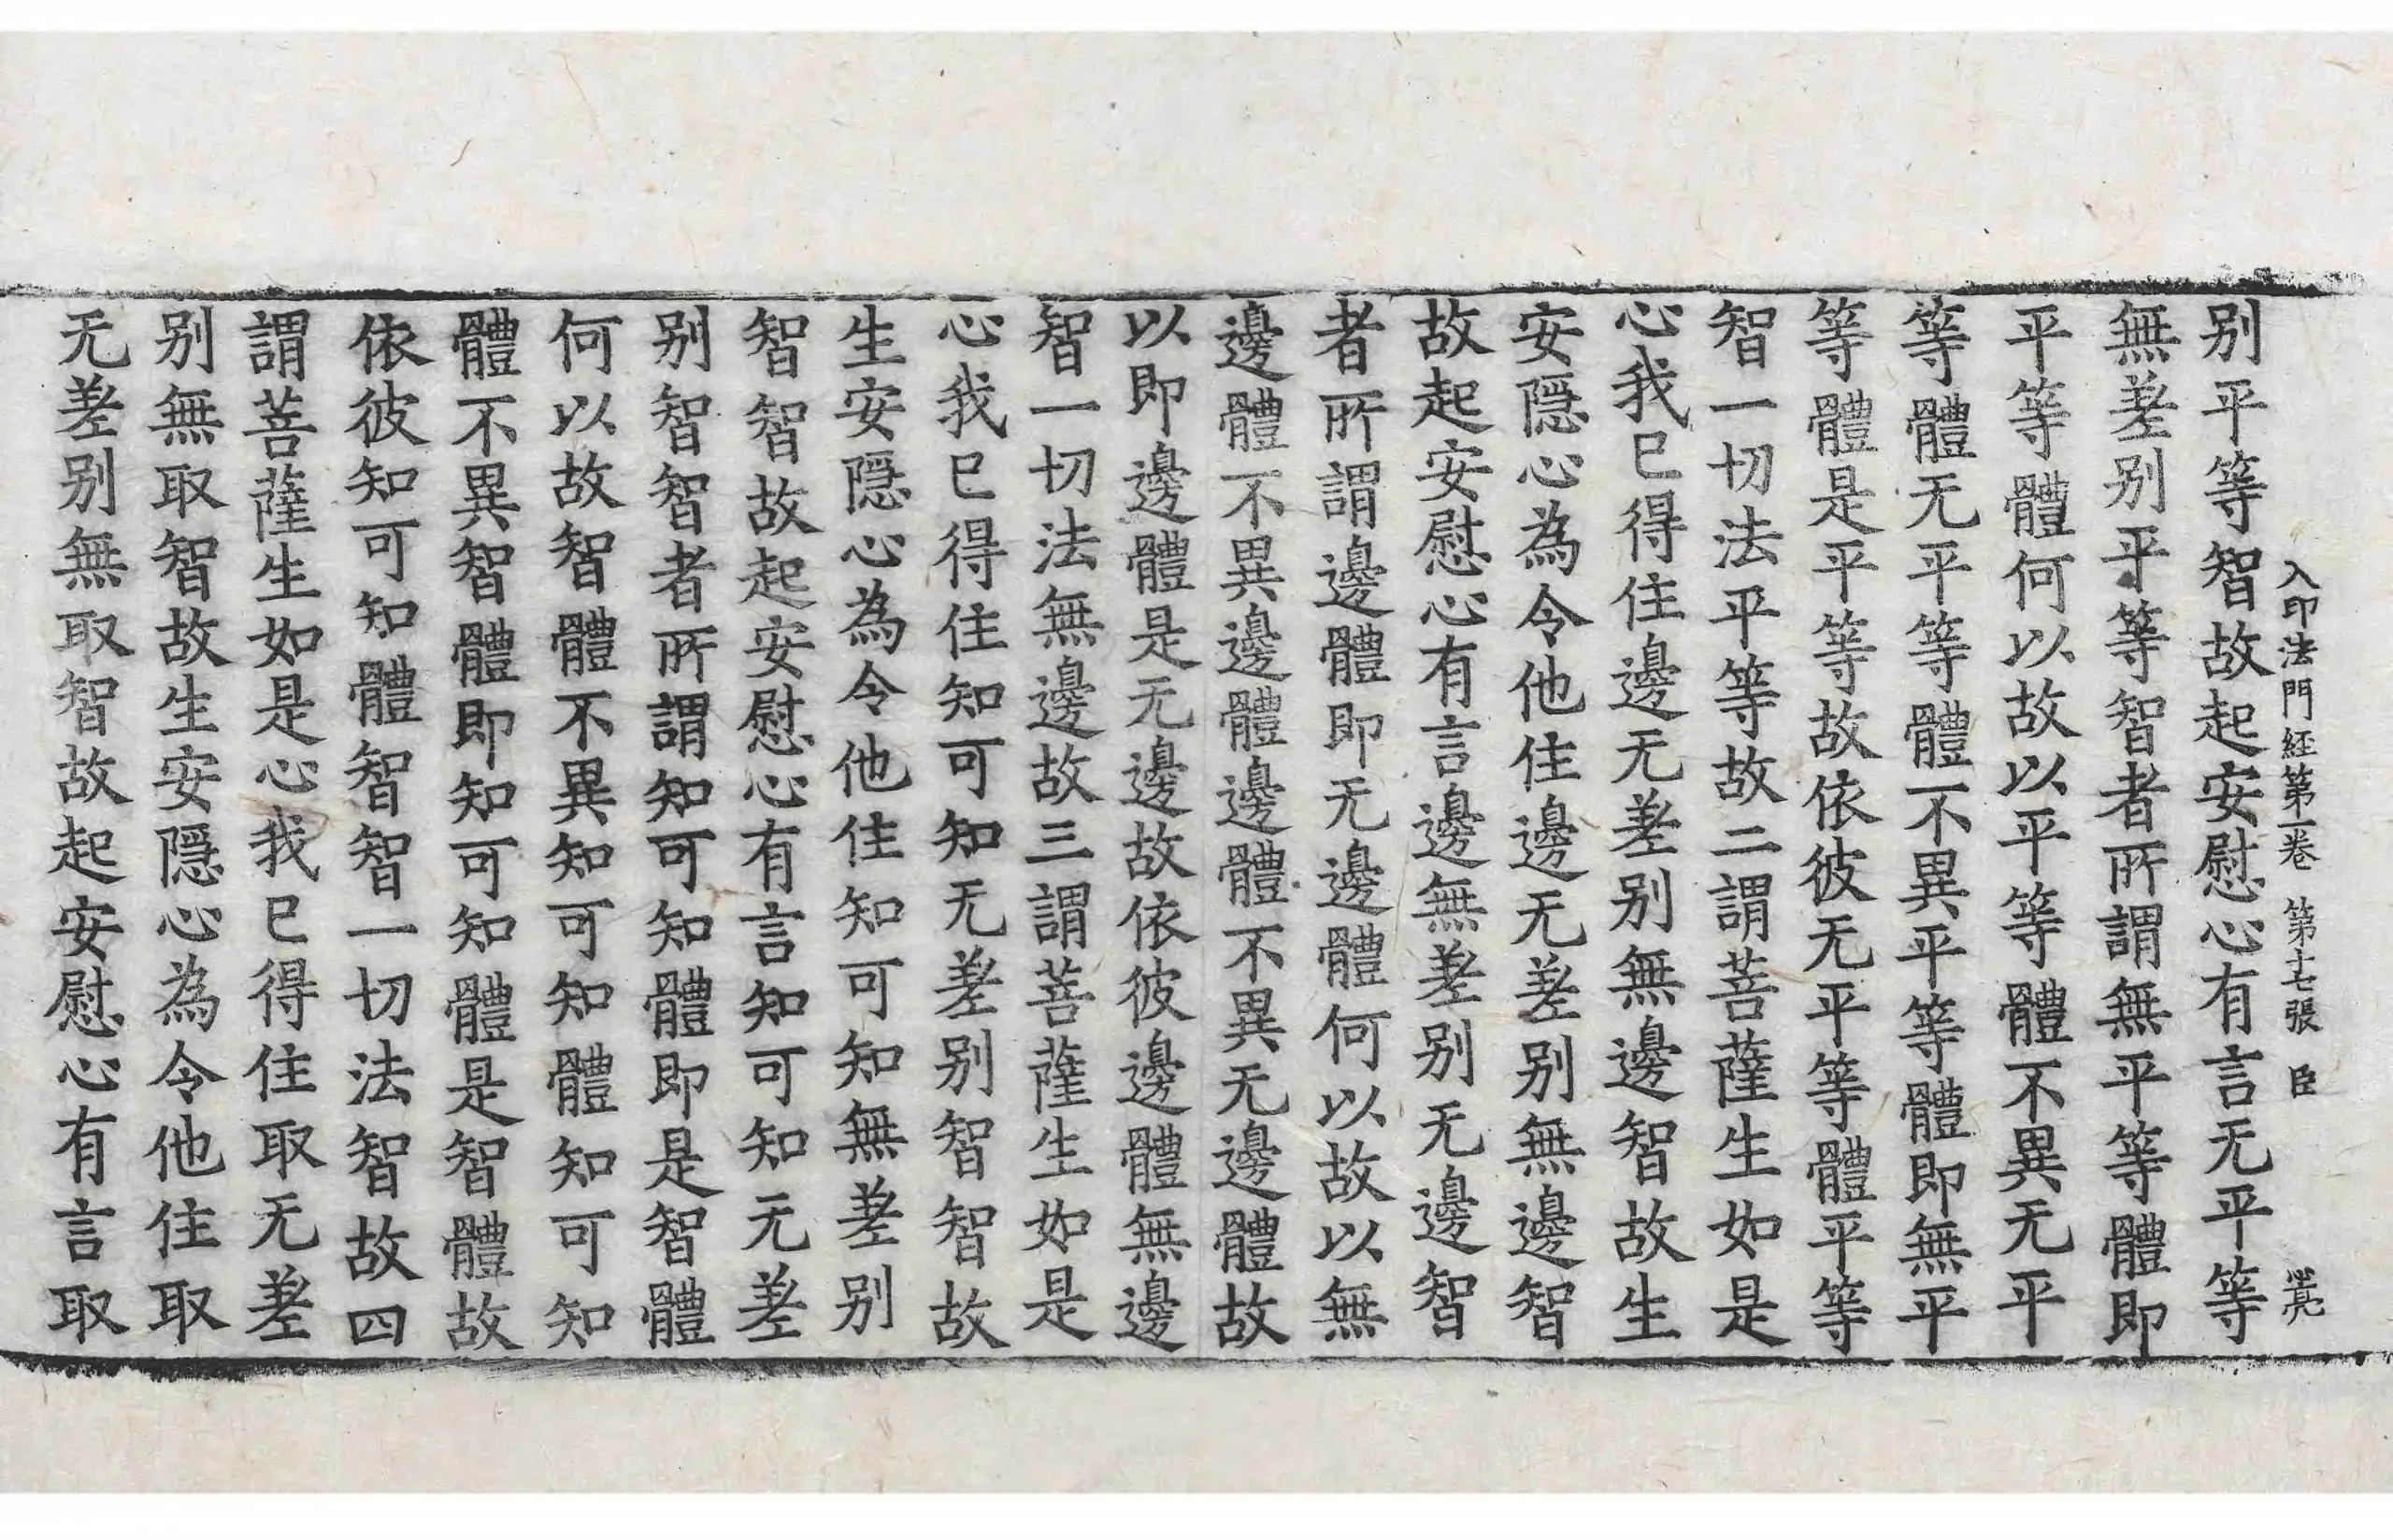 入印法門經第一卷 第十七張 臣
别平等智故起安慰心有言无平等
無差别平等智者所謂無平等體即
平等體何以故以平等體不異无平
等體无平等體不異平等體即無平
等體是平等故依彼无平等體平等
智一切法平等故二謂菩薩生如是
心我已得住邊无差别無邊智故生
安隱心為令他住邊无差别無邊智
故起安慰心有言邊無差别无邊智
者所謂邊體即无邊體何以故以無
邊體不異邊體邊體不異无邊體故
以即邊體是无邊故依彼邊體無邊
智一切法無邊故三謂菩薩生如是
心我已得住知可知无差别智智故
生安隱心為令他住知可知無差别
智智故起安慰心有言知可知无差
别智智者所謂知可知體即是智體
何以故智體不異知可知體知可知
體不異智體即知可知體是智體故
依彼知可知體智智一切法智故四
謂菩薩生如是心我已得住取无差
别無取智故生安隱心為令他住取
无差别無取智故起安慰心有言取